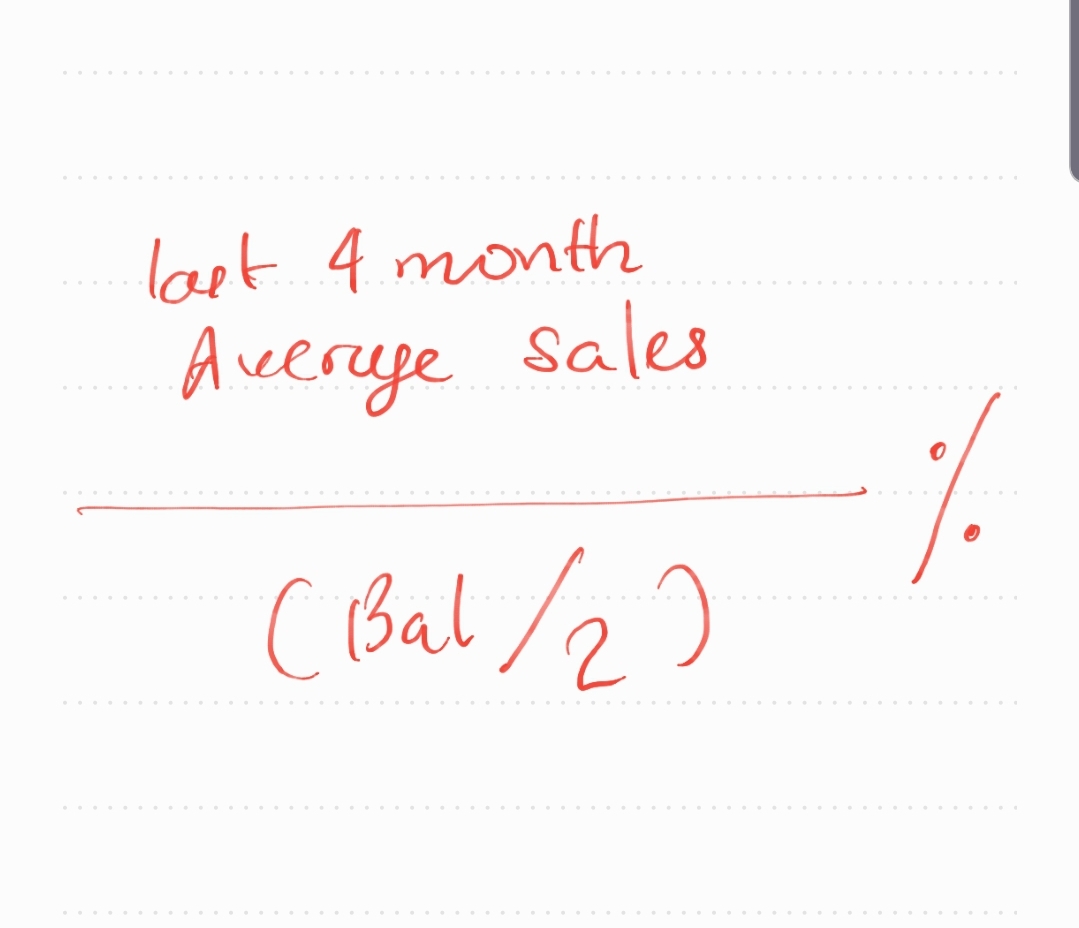 last 4 month
Average sales
%
(Bal/2)